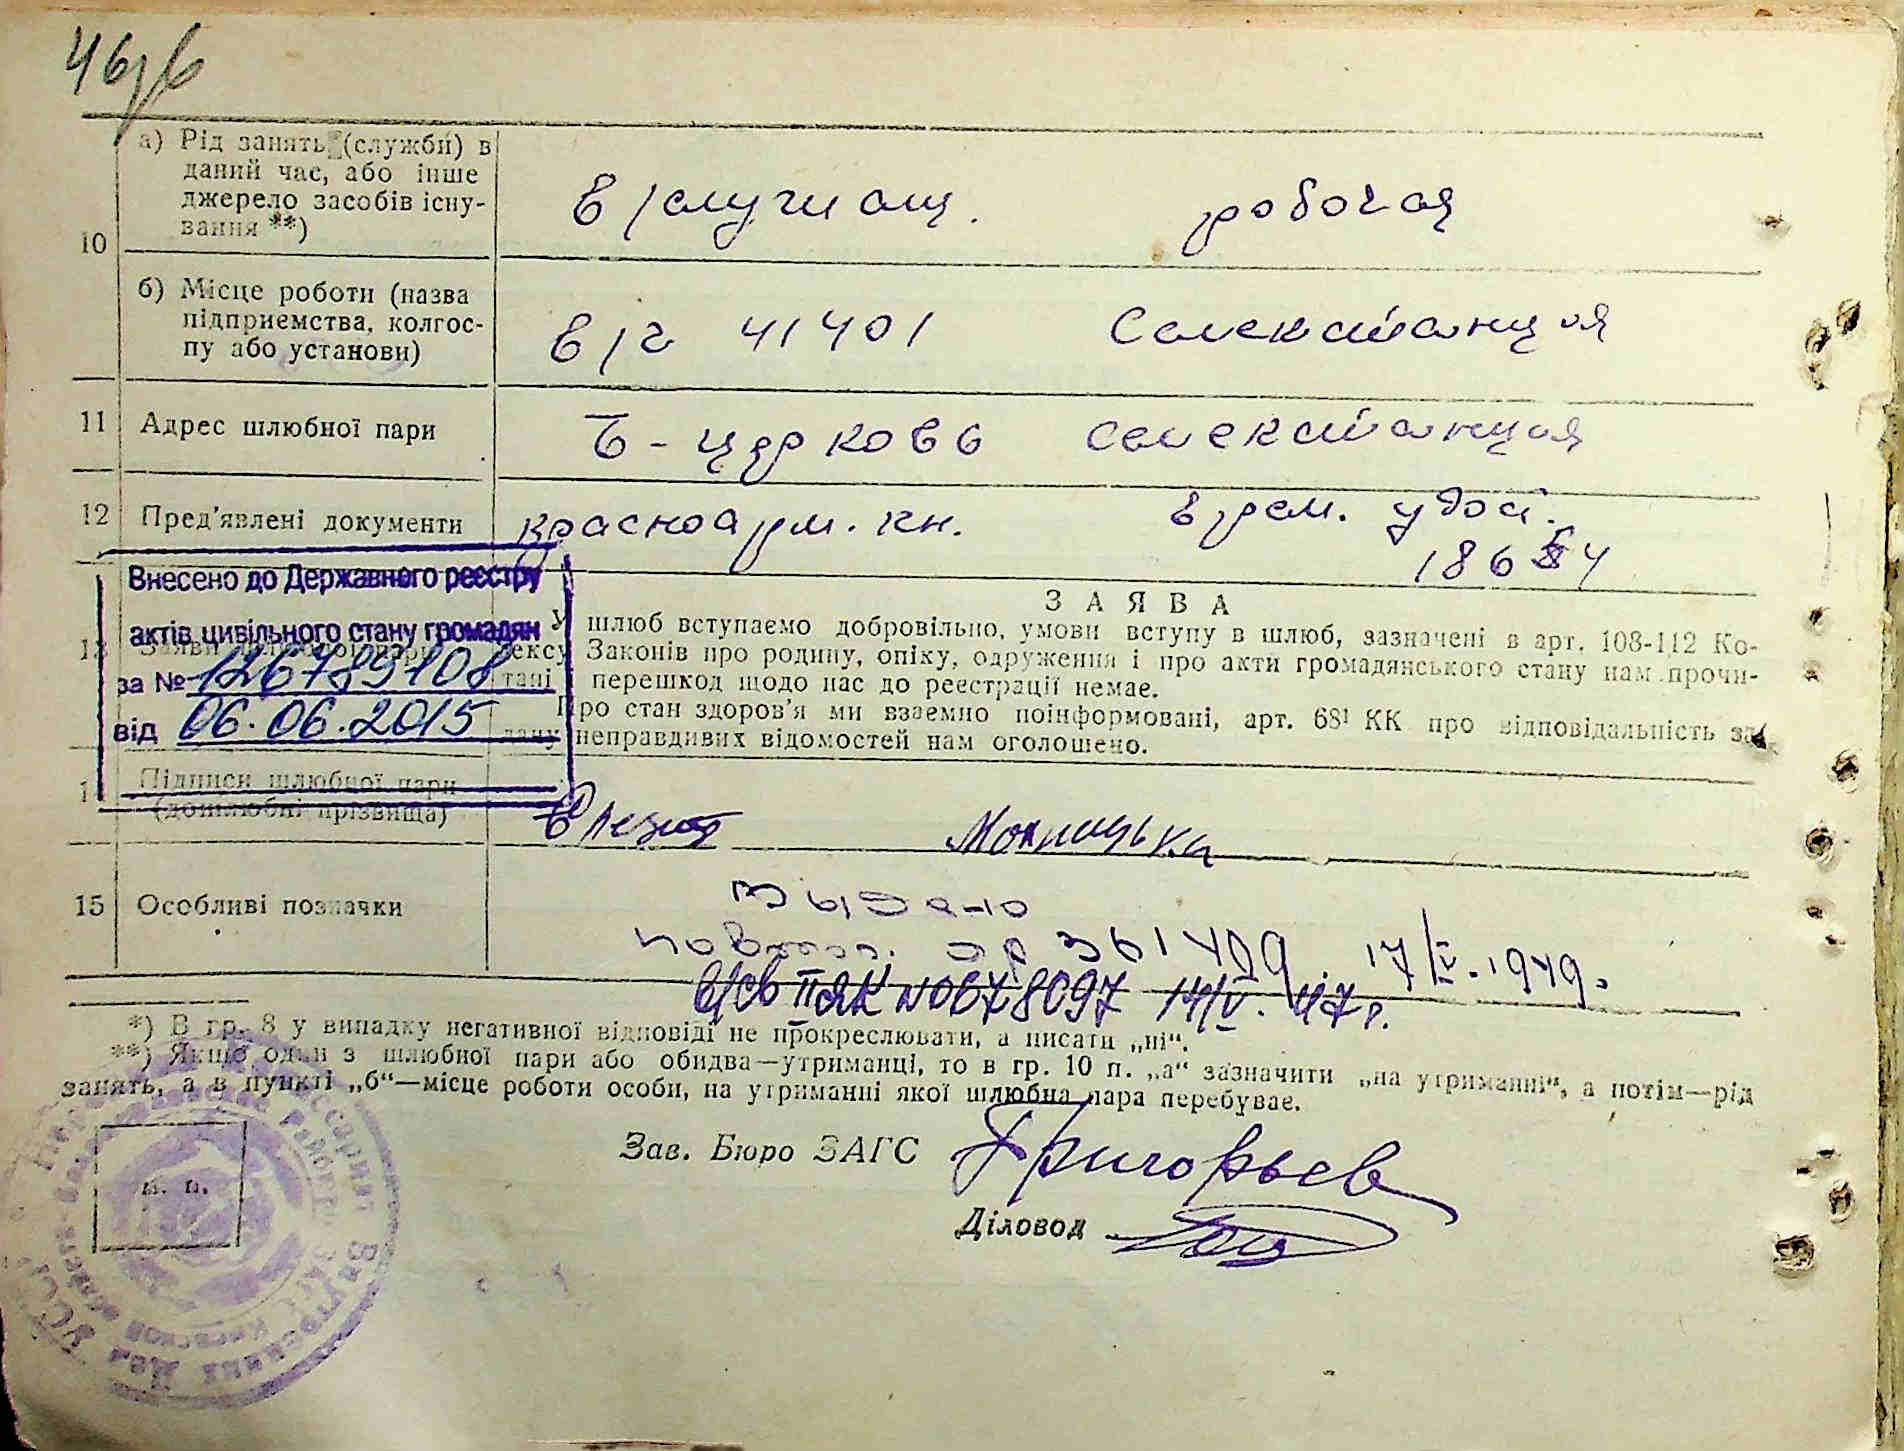 46
10 а) Рід занять (служби) в даний час, або інше джерело засобів існування **)
в/служащ. рабочая
б) Місце роботи (назва підприємства, колгоспу або установи)
в/ч 41401 Селекстанция
11 Адрес шлюбної пари
Б-церковь селекстанция
12 Пред'явлені документи
красноарм. кн. врем. удост.
186 4
Внесено до Державного реєстру
актів цивільного стану громадян
за № 126789108
від 06.06.2015
13 Заяви шлюбної пари
ЗАЯВА
У шлюб вступаємо добровільно, умови вступу в шлюб, зазначені в арт. 108-112 Ко-
дексу Законів про родину, опіку, одруження і про акти громадянського стану нам прочи-
тані перешкод щодо нас до реєстрації немає.
Про стан здоров'я ми взаємно поінформовані, арт. 68¹ КК про відповідальність за
дачу неправдивих відомостей нам оголошено.
Підписи шлюбної пари
(дошлюбні прізвища)
15 Особливі позначки
Выдано
повторн. 361409 17/V.1949.
в/св II ЯК №0678097 14/V. 47 г.
*) В гр. 8 у випадку негативної відповіді не прокреслювати, а писати „ні“.
**) Якщо один з шлюбної пари або обидва—утриманці, то в гр. 10 п. „а“ зазначити „на утриманні“, а потім—рід
занять, а в пункті „б“—місце роботи особи, на утриманні якої шлюбна пара перебуває.
м. п.
Зав. Бюро ЗАГС Григорьев
Діловод